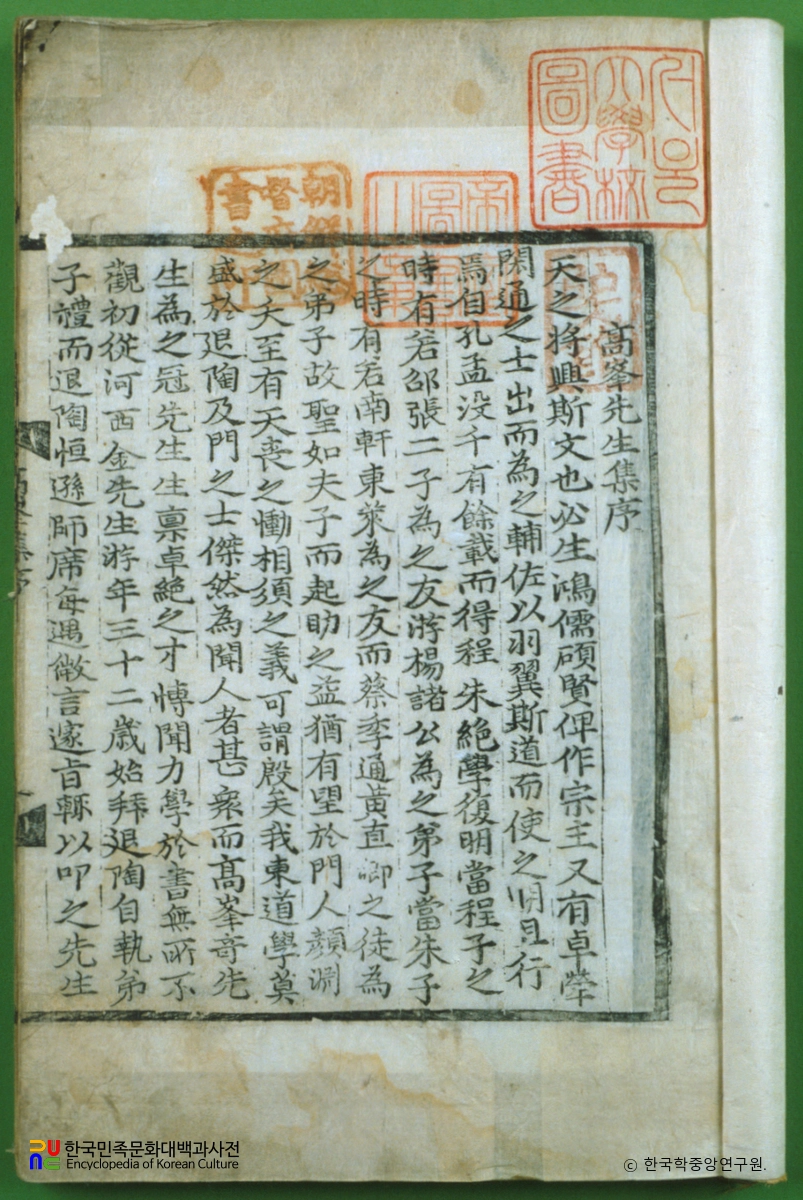 高峯先生集序
天之將興斯文也必生鴻儒碩賢俾作宗主又有卓犖
閎通之士出而為之輔佐以羽翼斯道而使之明且行
焉自孔孟沒千有餘載而得程朱絶學復明當程子之
時有若邵張二子為之友游楊諸公為之弟子當朱子
之時有若南軒東萊為之友而蔡季通黃直卿之徒為
之弟子故聖如夫子而起助之益猶有望於門人顔淵
之夭至有天喪之慟相須之義可謂殷矣我東道學莫
盛於退陶及門之士傑然為聞人者甚衆而高峯奇先
生為之冠先生生稟卓絶之才博聞力學於書無所不
觀初從河西金先生游年三十二歲始拜退陶自執弟
子禮而退陶恒遜師席每遇微言邃旨輒以叩之先生
朝鮮
督府
書之印
圖書
한국민족문화대백과사전
Encyclopedia of Korean Culture
© 한국학중앙연구원.